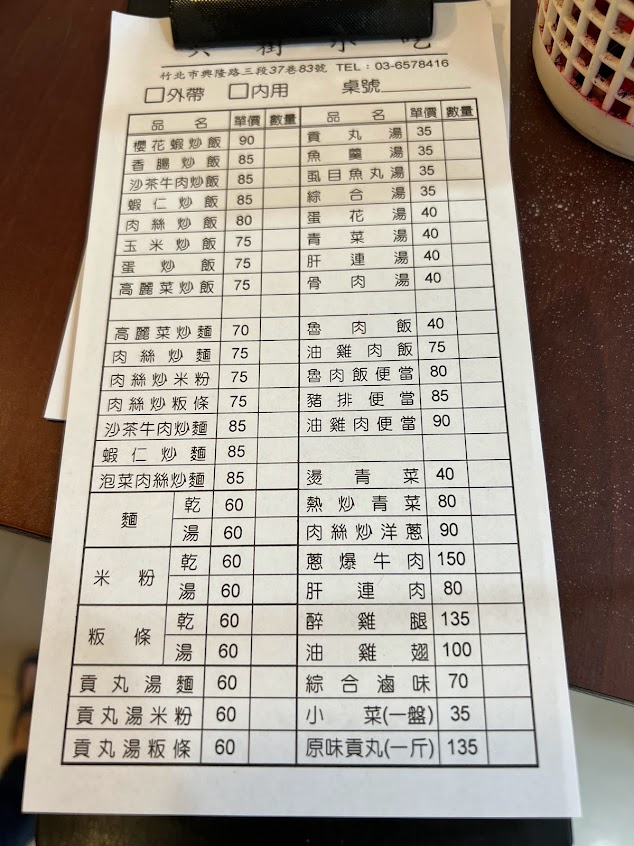 街 小 吃
竹北市興隆路三段37巷83號 TEL：03-6578416
□外帶 □內用 桌號
品名 單價 數量 品名 單價 數量
櫻花蝦炒飯 90 貢丸湯 35
香腸炒飯 85 魚羹湯 35
沙茶牛肉炒飯 85 虱目魚丸湯 35
蝦仁炒飯 85 綜合湯 35
肉絲炒飯 80 蛋花湯 40
玉米炒飯 75 青菜湯 40
蛋炒飯 75 肝連湯 40
高麗菜炒飯 75 骨肉湯 40
高麗菜炒麵 70 魯肉飯 40
肉絲炒麵 75 油雞肉飯 75
肉絲炒米粉 75 魯肉飯便當 80
肉絲炒粄條 75 豬排便當 85
沙茶牛肉炒麵 85 油雞肉便當 90
蝦仁炒麵 85
泡菜肉絲炒麵 85 燙青菜 40
麵 乾 60 熱炒青菜 80
湯 60 肉絲炒洋蔥 90
米粉 乾 60 蔥爆牛肉 150
湯 60 肝連肉 80
粄條 乾 60 醉雞腿 135
湯 60 油雞翅 100
貢丸湯麵 60 綜合滷味 70
貢丸湯米粉 60 小菜(一盤) 35
貢丸湯粄條 60 原味貢丸(一斤) 135